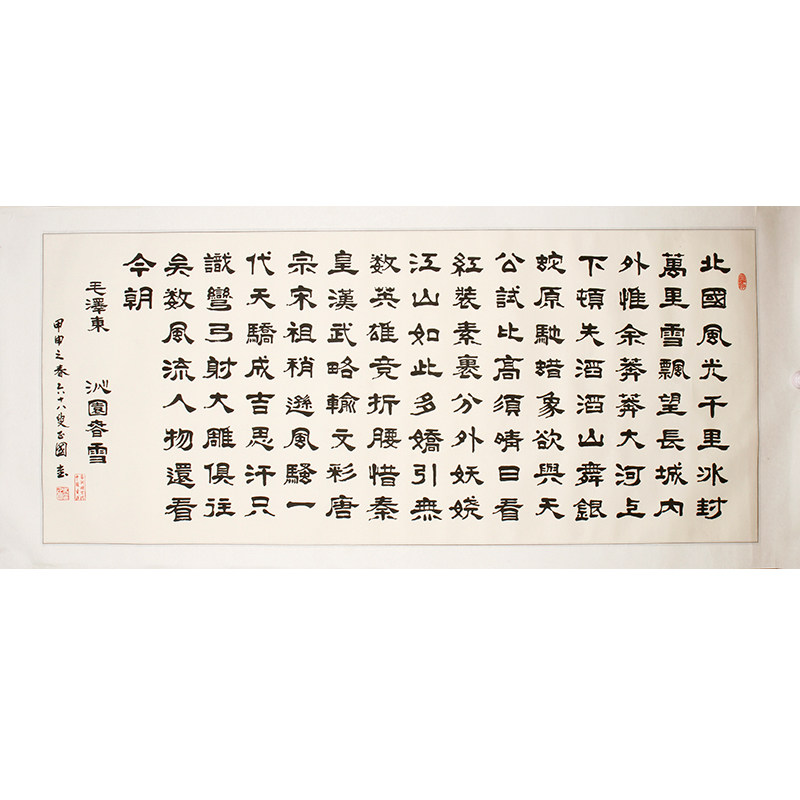 北國風光千里冰封
萬里雪飄望長城内
外惟余莽莽大河上
下頓失滔滔山舞銀
蛇原馳蜡象欲與天
公試比高須晴日看
紅裝素裹分外妖娆
江山如此多嬌引無
数英雄竞折腰惜秦
皇漢武略輸文彩唐
宗宋祖稍遜風騷一
代天驕成吉思汗只
識彎弓射大雕俱往
矣数風流人物還看
今朝
毛澤東 沁園春雪
甲申之春六十八叟正國書